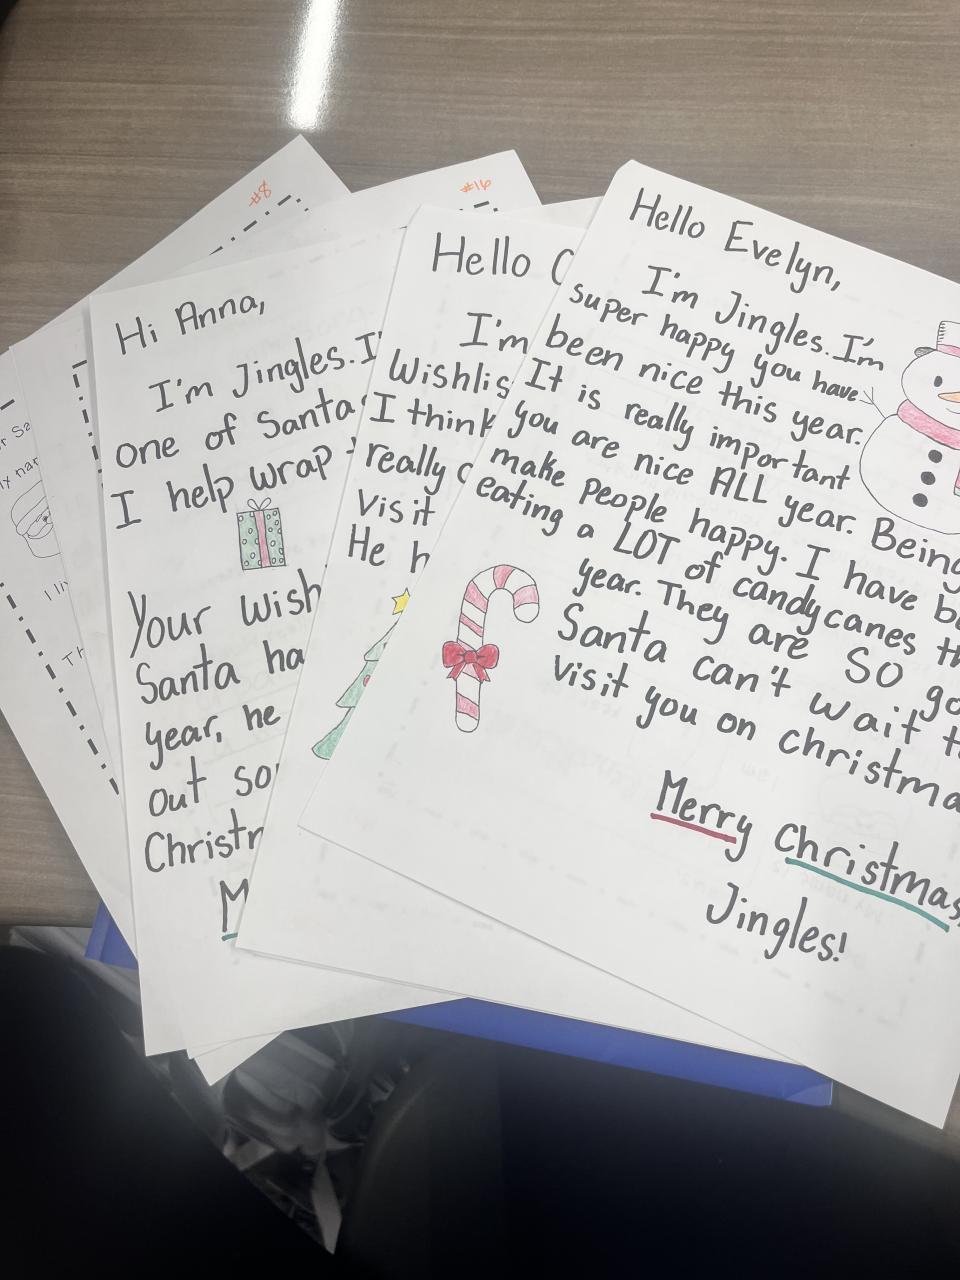 #8
#16
Hi Anna,
I'm Jingles. I'
one of Santa
I help wrap
Your wish
Santa ha
year, he
out so
Christ
M
Hello C
I'm
Wishlis
I think
really
Visit
He h
Hello Evelyn,
I'm Jingles. I'm
super happy you have
been nice this year.
It is really important
you are nice ALL year. Being
make people happy. I have b
eating a LOT of candycanes th
year. They are SO go
Santa can't wait t
visit you on christma
Merry Christmas,
Jingles!